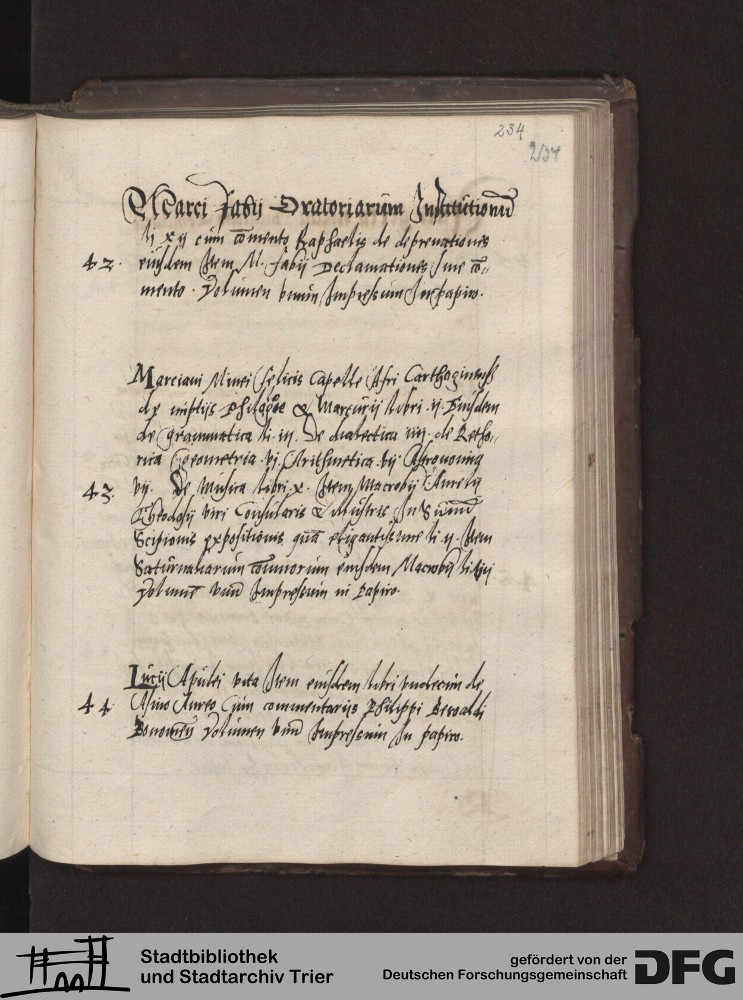 234
234
Marci Fabij Oratoriarum Institutionū
li xij cum cōmento Raphaelis de deprenationes
42. eiusdem Item M. Fabij Declamationes sine cō-
mento. Volumen vnum Impressum In papiro.
Marciani Minei Felicis Capelle Afri Carthaginensis
de nuptijs Philogie & Mercurij libri ij. Eiusdem
de grammatica li. iij. De dialectica iiij. de Retho-
rica Geometria vj Arithmetica vij Astronomia
43. vij. De Musica libri x. Item Macrobij Aurelij
Theodosij viri Consularis & Illustris In Somniū
Scipionis expositionis quā eligantissime li ij. Item
Saturnaliarum eiusdem Macrobij li
Volumē vnū Impressum in Papiro.
Lucij Apulei vita Item eiusdem libri vndecim de
44. Asino Aureo Cum commentarijs Philippi Beroaldi
Bononien̄ Volumen vnū Impressum In papiro.
Stadtbibliothek
und Stadtarchiv Trier
gefördert von der
Deutschen Forschungsgemeinschaft
DFG